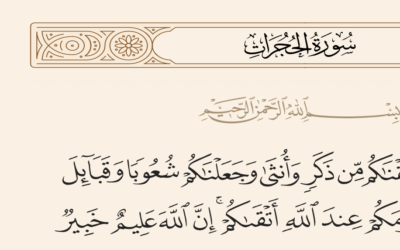 سُورَةُ الْحُجُرَاتِ
بِسْمِ اللَّهِ الرَّحْمَٰنِ الرَّحِيمِ
مِّن ذَكَرٍ وَأُنثَىٰ وَجَعَلْنَاكُمْ شُعُوبًا وَقَبَائِلَ
عِندَ اللَّهِ أَتْقَاكُمْ ۚ إِنَّ اللَّهَ عَلِيمٌ خَبِيرٌ